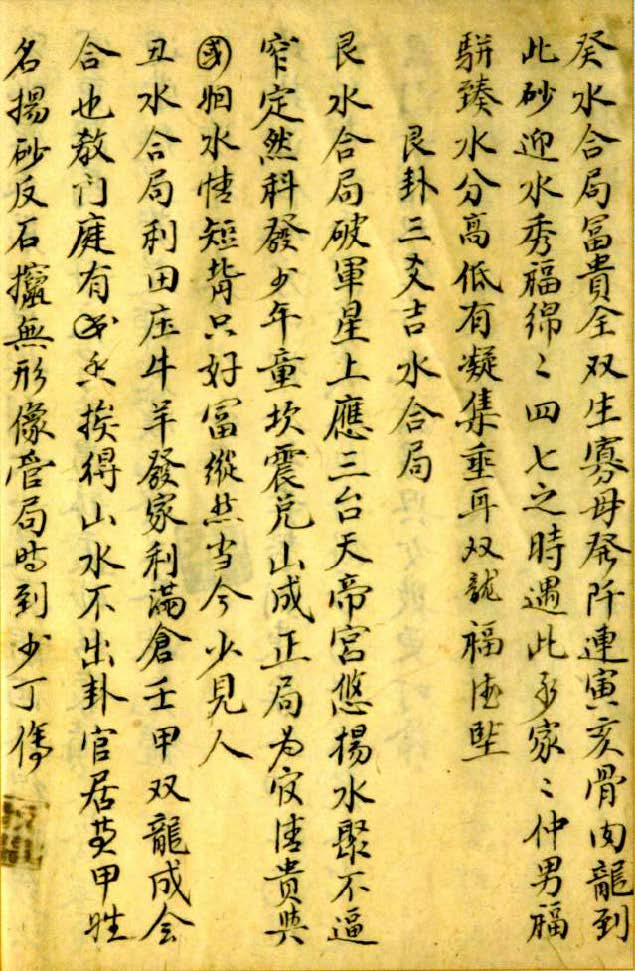 癸水合局冨貴全双生寡母発阡連寅亥骨肉龍到
此砂迎水秀福綿〻四七之時遇此多家〻仲男福
駢臻水分髙低有凝集垂耳双龍福德坚
艮卦三爻吉水合局
艮水合局破軍星上應三台天帝宮悠揚水聚不逼
窄定然科發少年童坎震兑山成正局为官清貴與
國 水情短背只好冨縱然当今少見人
丑水合局利田庄牛羊發家利滿倉壬甲双龍成会
合也教门庭有 挨得山水不出卦官居 甲姓
名揚砂反石攛無形像管局时到少丁傷